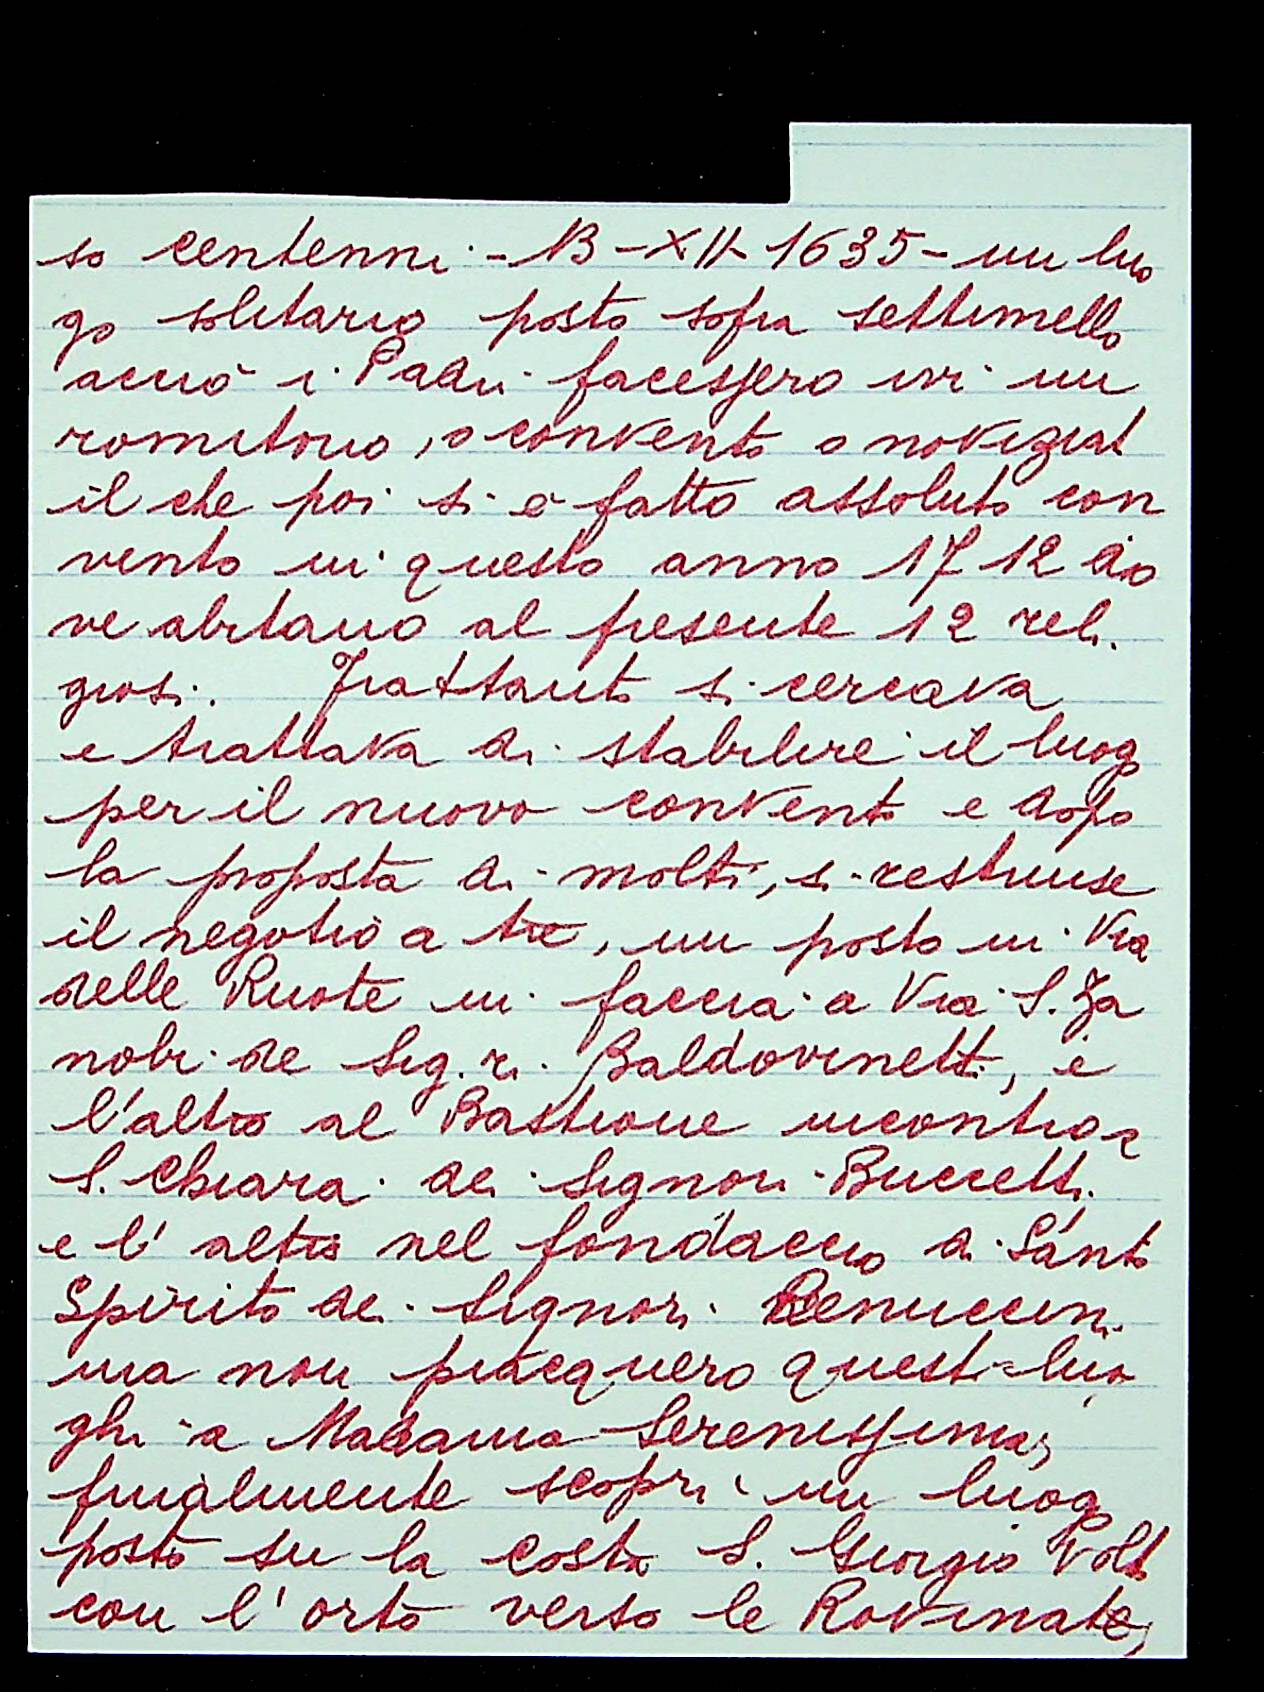 so centenni - 13 - XII - 1635 - un luo
go solitario posto sopra settimello
acciò i Padri facessero ivi un
romitorio, o convento o noviziat
il che poi si è fatto assoluto con
vento in questo anno 1712 do
ve abitano al presente 12 reli
giosi. Frattanto si cercava
e trattava di stabilire il luog
per il nuovo convento e dopo
la proposta di molti, si restrinse
il negotio a tre, un posto in Via
delle Ruote in faccia a Via S. Za
nobi de Sig.ri Baldovinetti, e
l'altro al Bastione incontro a
S. Chiara dei Signori Buccetti
e l'altro nel fondaccio di Santo
Spirito dei Signori Renuccini
ma non piacquero questi luo
ghi a Madama Serenissima,
finalmente scoprì un luog
posto su la costa S. Giorgio volt
con l'orto verso le Rovinate,